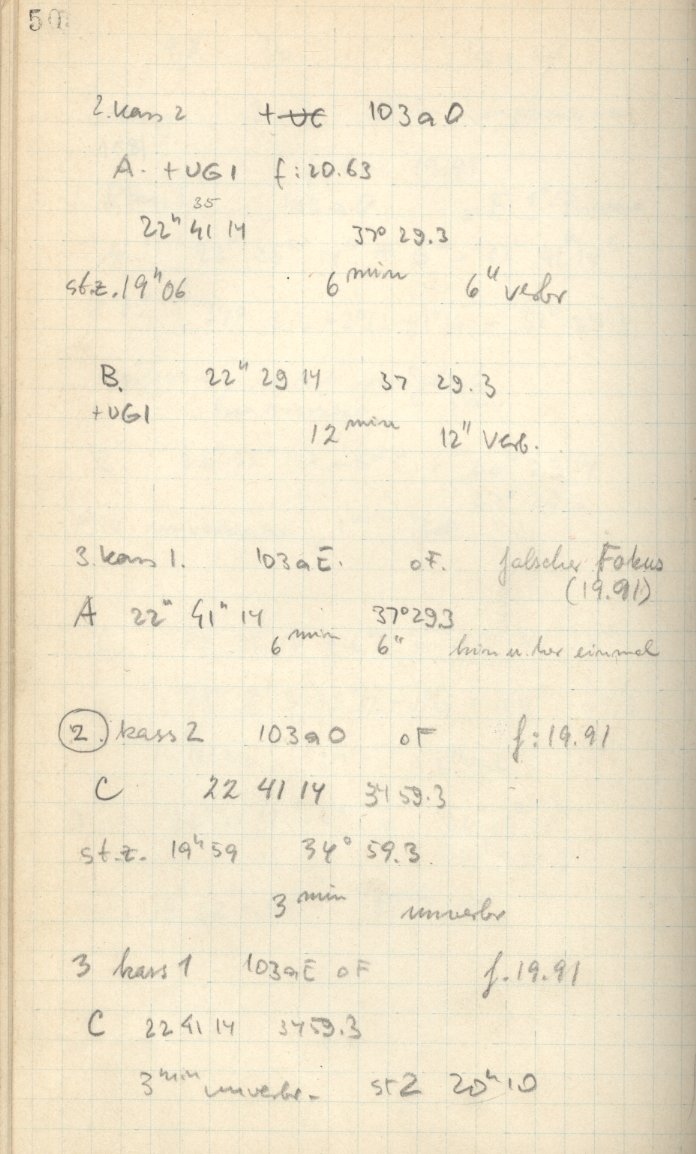 50
2. kass 2 + UG 103aO
A. +UG1 f: 20.63
35
22ʰ 41 14 37° 29.3
st.z. 19ʰ06 6 min 6" verbr
B. 22ʰ 29 14 37 29.3
+UG1
12 min 12" verb.
3. kass 1. 103aE. oF. falscher Fokus
(19.91)
A 22ʰ 41ᵐ 14 37° 29.3
6 min 6" hin u. her einmal
2. kass 2 103aO oF f: 19.91
C 22 41 14 34 59.3
st.z. 19ʰ59 34° 59.3.
3 min unverbr
3 kass 1 103aE oF f. 19.91
C 22 41 14 34 59.3
3 min unverbr. stZ 20ʰ10